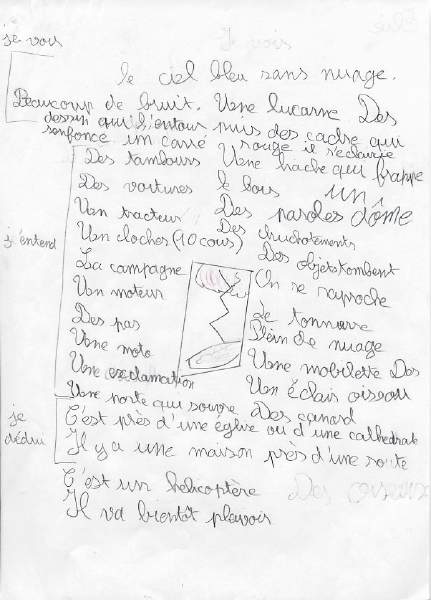 je vois
le ciel bleu sans nuage.
Beaucoup de bruit. Une lucarne Des
dessin qui l'entour puis des cadre qui
senfonce un carré rouge il s'eclaircie
j'entend
Des tambours Une hache qui frappe
Des voitures le bois un
Un tracteur Des paroles dôme
Un cloches (10 cous) Des chuchotements
La campagne Des objets tombent
Un moteur On se raproche
Des pas Le tonnerre
Une moto Plein de nuage
Une exclamation Une mobilette Des
Une porte qui souvre Un Éclais oiseau
je dédui
Des canard
C'est près d'une église ou d'une cathedrale
Il y a une maison près d'une route
C'est un hélicoptère
Il va bientôt pleuvoir